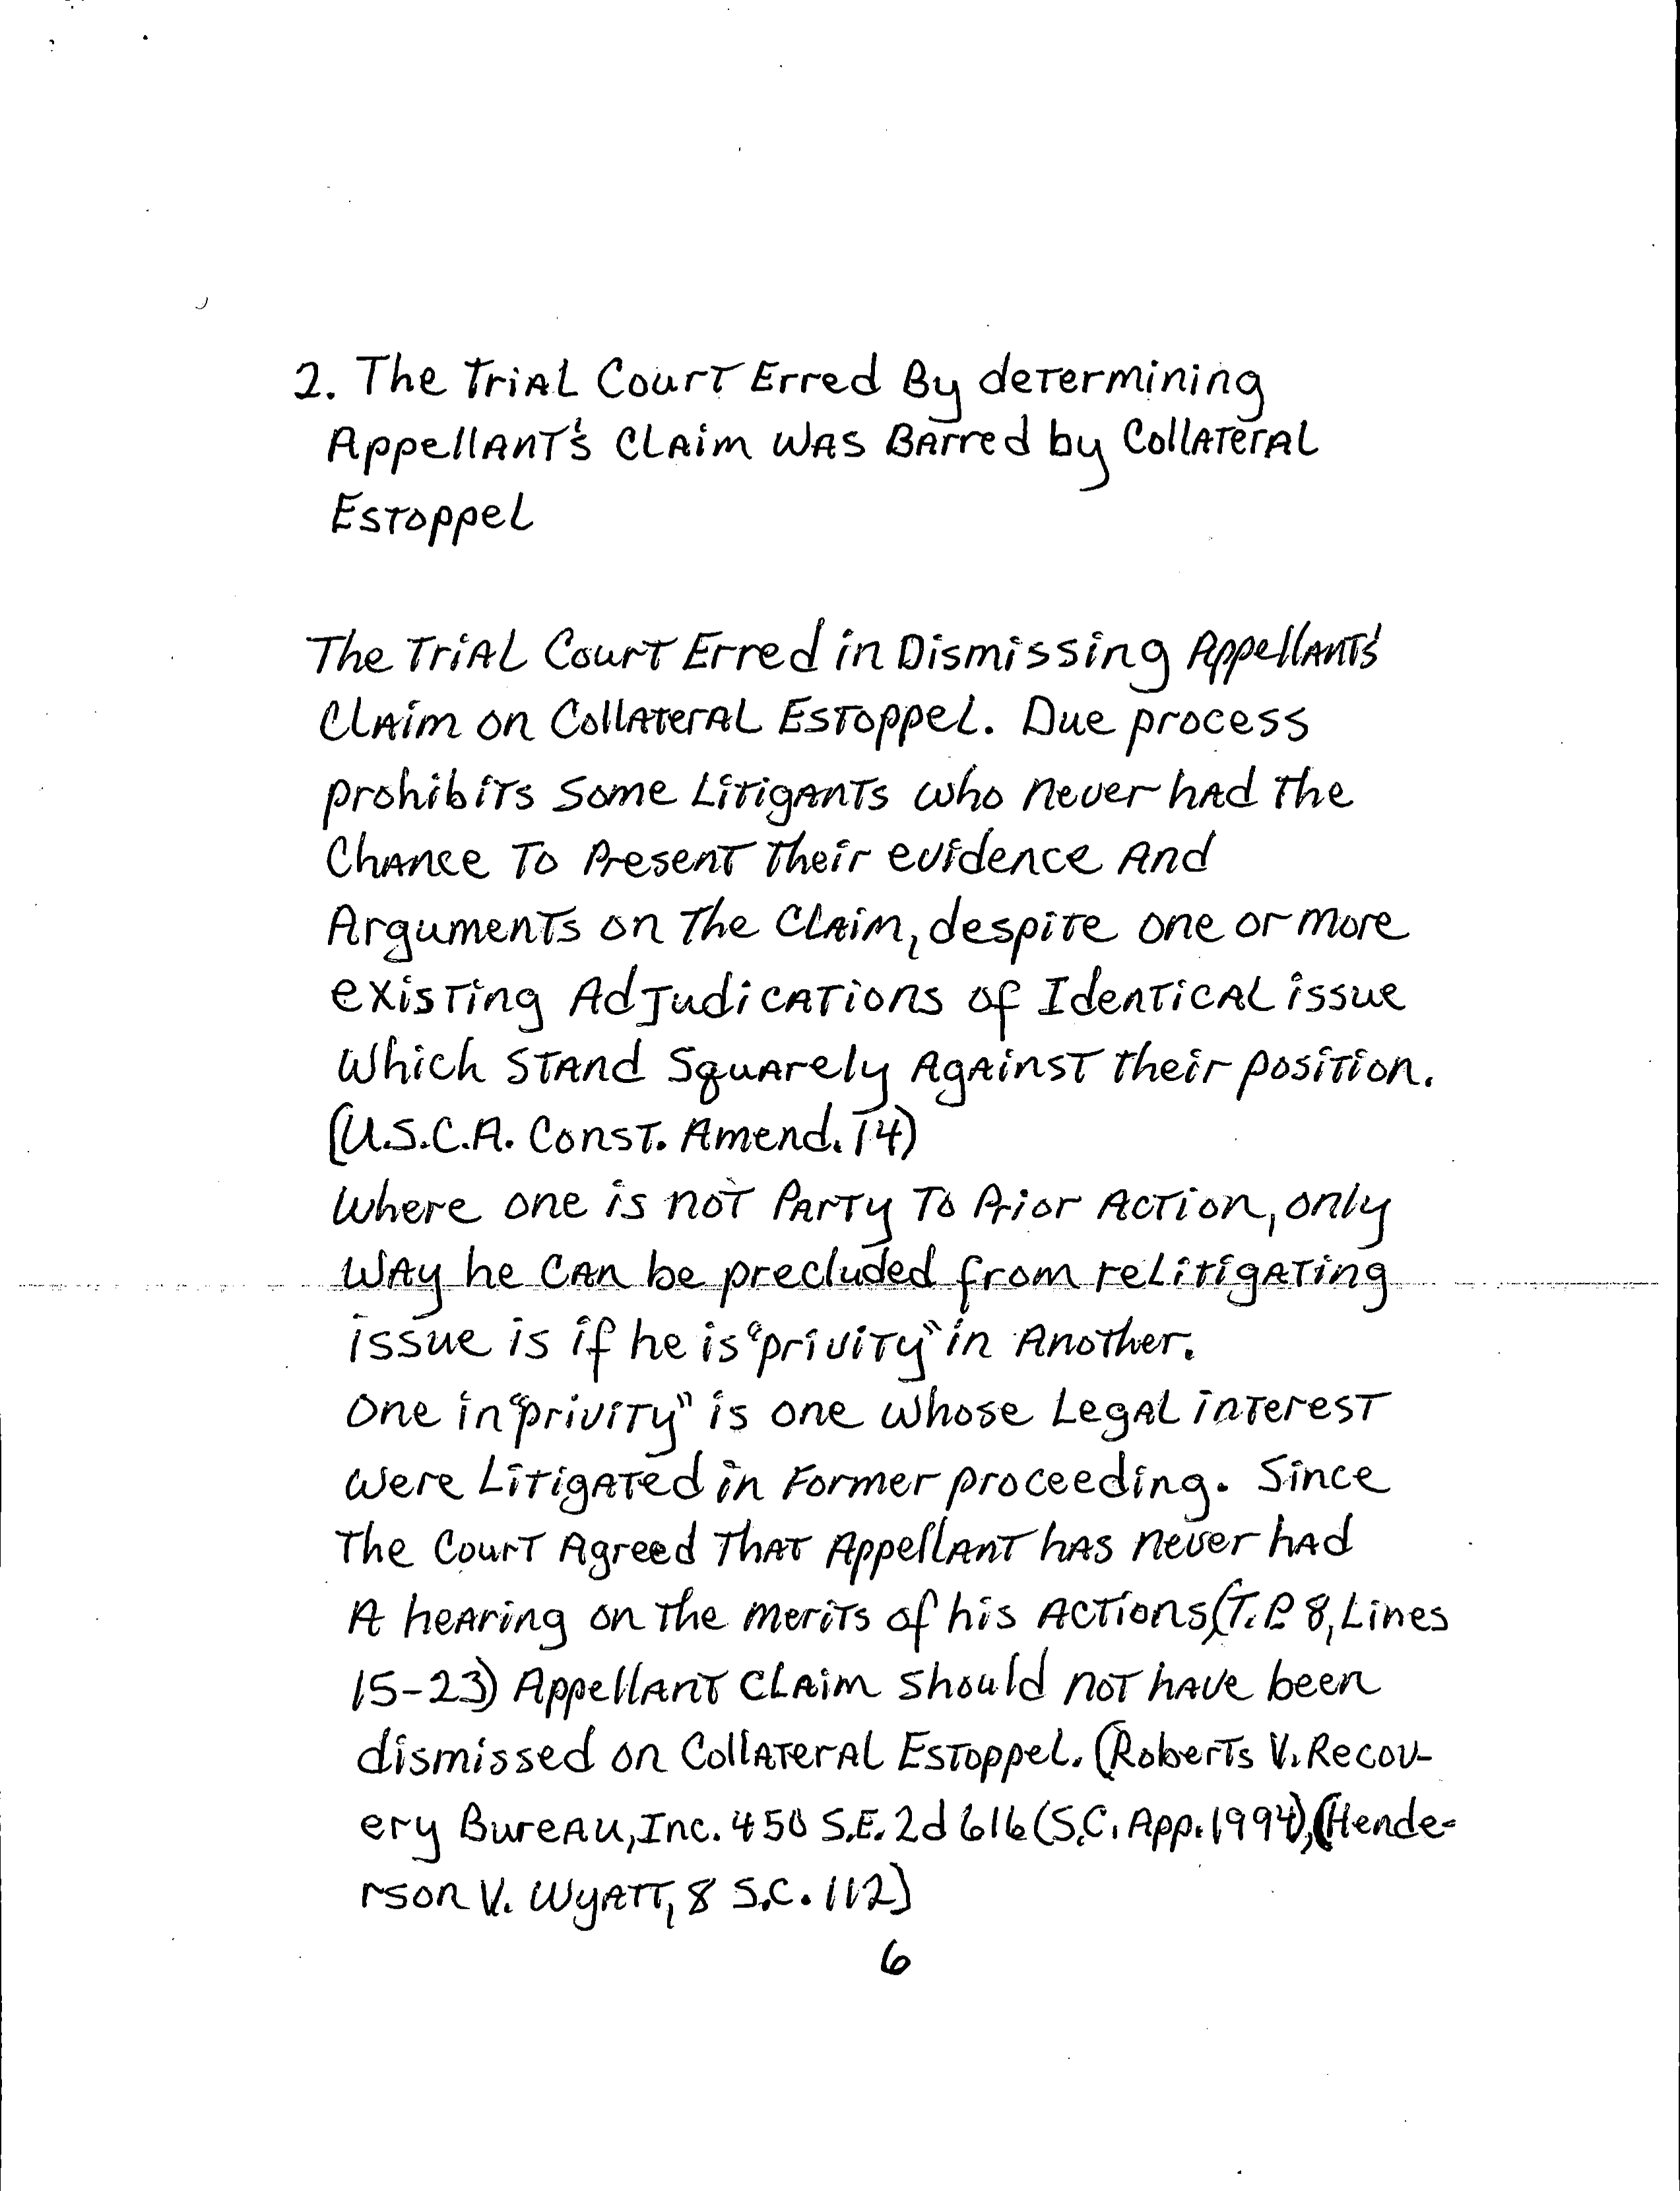 2. The Trial Court Erred By determining
Appellant's Claim was Barred by Collateral
Estoppel
The Trial Court Erred in Dismissing Appellant's
Claim on Collateral Estoppel. Due process
prohibits some Litigants who never had the
Chance To Present their evidence And
Arguments on The Claim, despite one or more
existing Adjudications of Identical issue
Which STAnd Squarely Against their position.
(U.S.C.A. Const. Amend. 14)
Where one is not Party To Prior Action, only
Way he can be precluded from relitigating
issue is if he is "privity" in Another.
One in "privity" is one whose Legal interest
were Litigated in Former proceeding. Since
The Court Agreed That Appellant has never had
A hearing on the merits of his Actions (T.P. 8, Lines
15-23) Appellant Claim should not have been
dismissed on Collateral Estoppel. (Roberts V. Recov-
ery Bureau, Inc. 450 S.E. 2d 616 (S.C. App. 1994), (Hende-
rson V. Wyatt, 8 S.C. 112)
6